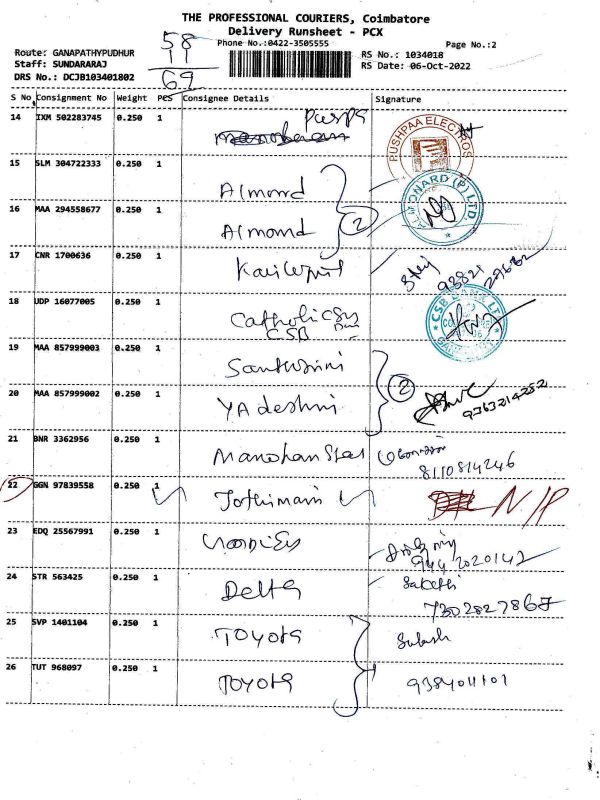 THE PROFESSIONAL COURIERS, Coimbatore
Delivery Runsheet - PCX
Phone No.:0422-3505555
Page No.:2
58
11
69
Route: GANAPATHYPUDHUR
Staff: SUNDARARAJ
DRS No.: DCJB103401802
RS No.: 1034018
RS Date: 06-Oct-2022
S No Consignment No Weight PCS Consignee Details Signature
14 IXM 502283745 0.250 1
PUSHPAA ELECTROS
15 SLM 304722333 0.250 1 Almond
ALMONARD (P) LTD.
16 MAA 294558677 0.250 1 Almond
2
17 CNR 1700636 0.250 1
18 UDP 16077005 0.250 1 Catholic
CSB
CSB BANK LTD
19 MAA 857999003 0.250 1
20 MAA 857999002 0.250 1
2
9363214252
21 BNR 3362956 0.250 1
8110814246
22 GGN 97839558 0.250 1 Jothimani N/P
23 EDQ 25567991 0.250 1
944 2020142
24 STR 563425 0.250 1 Delta
7302827867
25 SVP 1401104 0.250 1 TOYOTA
26 TUT 968097 0.250 1 TOYOTA 9384011101